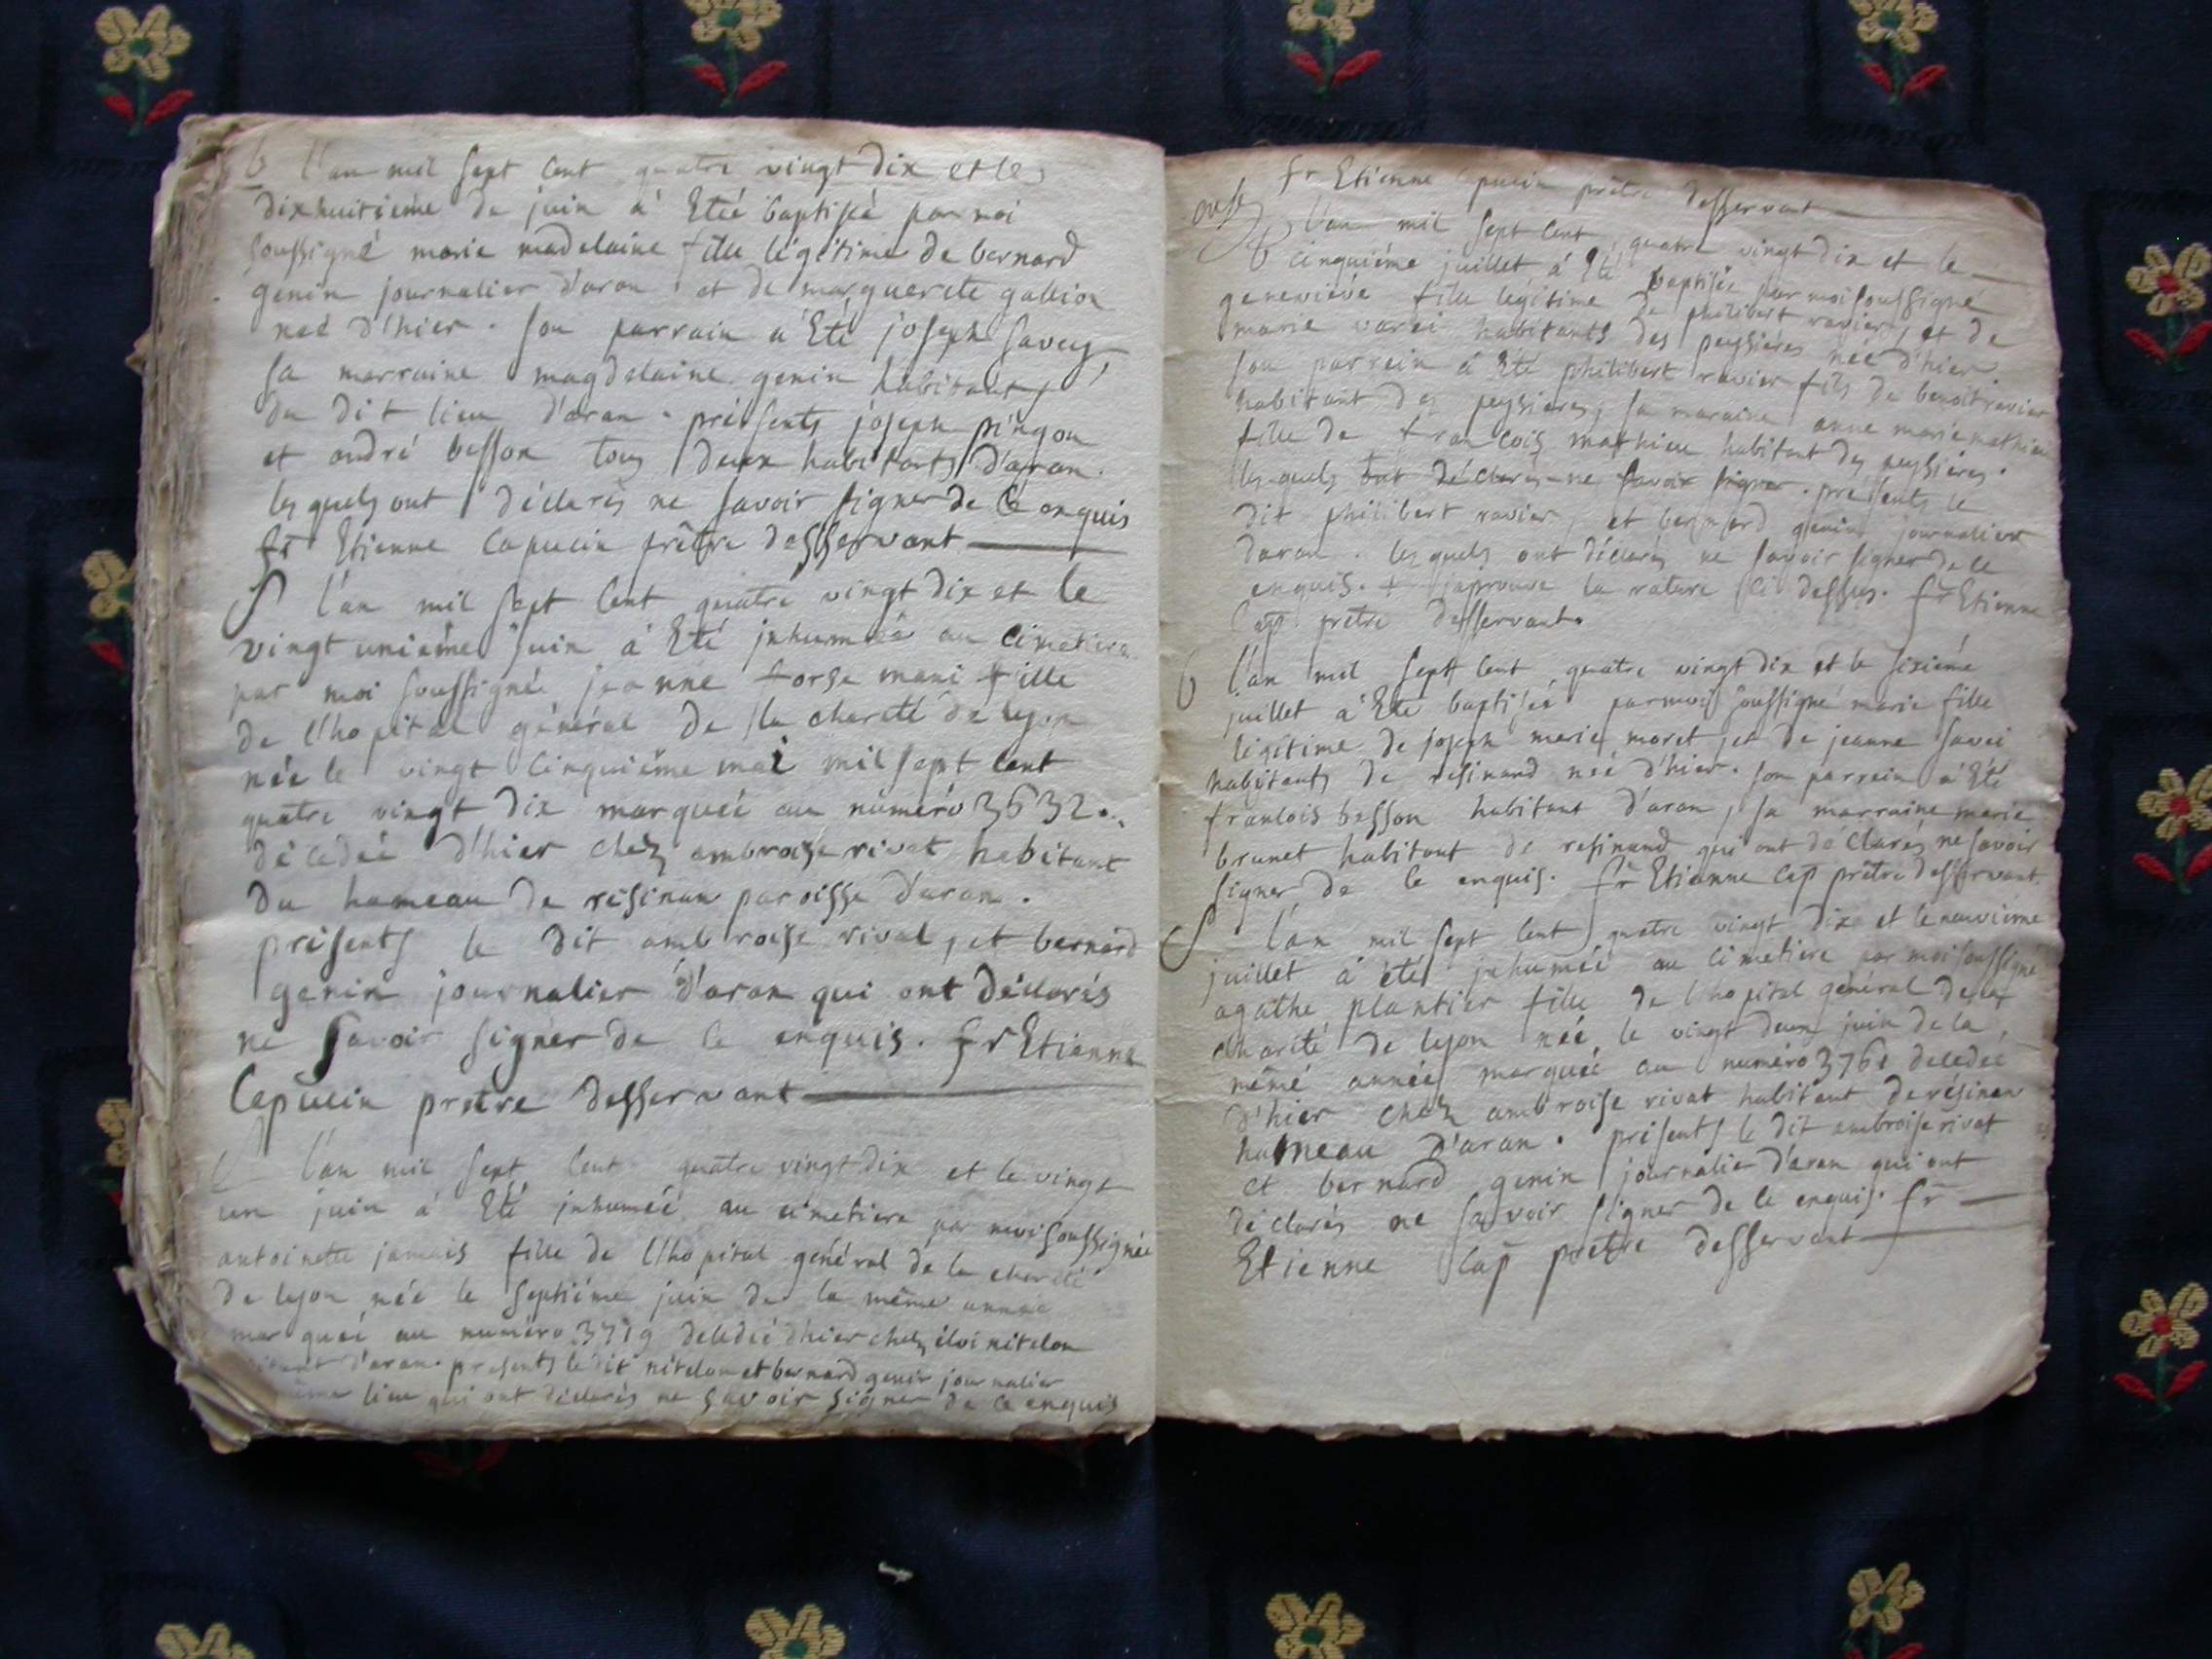 b L'an mil sept cent quatre vingt dix et le
dixhuitiéme de juin a' Eteé baptisée par moi
soussigné marie madelaine fille légitime de bernard
genin journalier d'aran et de marguerite gallion
neé d'hier. son parrain a' Eté joseph savey,
sa marraine magdelaine genin habitants
du dit lieu d'aran. présents joseph pingon
et andré besson tous deux habitants d'aran.
les quels ont déclarés ne savoir signer de ce enquis
fr Etienne Capucin prêtre desservant
S l'an mil sept cent quatre vingt dix et le
vingt uniéme juin a' Eté inhumeé au cimetiere
par moi soussigné jeanne forse mani fille
de l'hopital général de la charité de lyon
née le vingt cinquiéme mai mil sept cent
quatre vingt dix marqueé au numéro 3632.
décedeé d'hier chez ambroise rivat habitant
du hameau de resinan paroisse d'aran.
présents le dit ambroise rivat, et bernard
genin journalier d'aran qui ont déclarés
ne savoir signer de ce enquis. fr Etienne
Capucin prêtre desservant
S l'an mil sept cent quatre vingt dix et le vingt
un juin a' Eté inhumeé au cimetiere par moi soussigné
antoinette jamais fille de l'hopital général de la charité
de lyon née le septiéme juin de la même année
marqueé au numéro 3719 decedeé d'hier chez éloi nitelon
d'aran. présents le dit nitelon et bernard genin journalier
lieu qui ont déclarés ne savoir signer de ce enquis
fr Etienne capucin prêtre desservant
b L'an mil sept cent quatre vingt dix et le
cinquiéme juillet a' Eté baptiseé par moi soussigné
genevieve fille légitime de philibert ravier, et de
marie varei habitants des peysieres née d'hier
son parrein a' Eté philibert ravier fils de benoit ravier
habitant des peysieres, sa maraine anne marie mathieu
fille de francois mathieu habitant des peysiéres.
les quels ont déclarés ne savoir signer. présents le
dit philibert ravier, et bernard genin journalier
d'aran. les quels ont déclarés ne savoir signer de ce
enquis. + japrouve la rature ci dessus. fr Etienne
Cap prêtre desservant.
b l'an mil sept cent quatre vingt dix et le sixiéme
juillet a' Eté baptiseé par moi soussigné marie fille
légitime de joseph marie moret, et de jeanne savei
habitants de resinand neé d'hier. son parrein a' Eté
francois besson habitant d'aran, sa marraine marie
brunet habitant de resinand qui ont déclarés ne savoir
signer de ce enquis. fr Etienne Cap prêtre desservant.
S l'an mil sept cent quatre vingt dix et le neuviéme
juillet a' été inhumeé au cimetiere par moi soussigné
agathe plantier fille de l'hopital général de la
charité de lyon née le vingt deux juin de la
même année marqueé au numéro 3761 decedeé
d'hier chez ambroise rivat habitant de résinan
hameau d'aran. présents le dit ambroise rivat
et bernard genin journalier d'aran qui ont
déclarés ne savoir signer de ce enquis. fr
Etienne Cap prêtre desservant